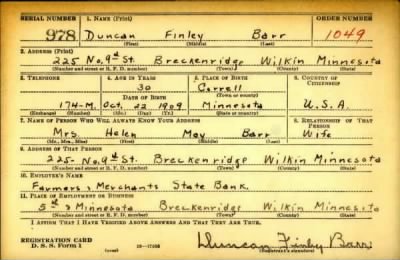 SERIAL NUMBER 1. NAME (Print) ORDER NUMBER
978 Duncan Finley Barr 1049
(First) (Middle) (Last)
2. ADDRESS (Print)
225 No. 9th St. Breckenridge Wilkin Minnesota
(Number and street or R. F. D. number) (Town) (County) (State)
3. TELEPHONE 4. AGE IN YEARS 5. PLACE OF BIRTH 6. COUNTRY OF CITIZENSHIP
30 Correll
DATE OF BIRTH (Town or county)
174-M. Oct. 22 1909 Minnesota U.S.A.
(Exchange) (Number) (Mo.) (Day) (Yr.) (State or country)
7. NAME OF PERSON WHO WILL ALWAYS KNOW YOUR ADDRESS 8. RELATIONSHIP OF THAT PERSON
Mrs. Helen May Barr Wife
(Mr., Mrs., Miss) (First) (Middle) (Last)
9. ADDRESS OF THAT PERSON
225- No. 9th St. Breckenridge Wilkin Minnesota
(Number and street or R. F. D. number) (Town) (County) (State)
10. EMPLOYER'S NAME
Farmers & Merchants State Bank.
11. PLACE OF EMPLOYMENT OR BUSINESS
5th & Minnesota Breckenridge Wilkin Minnesota
(Number and street or R. F. D. number) (Town) (County) (State)
I AFFIRM THAT I HAVE VERIFIED ABOVE ANSWERS AND THAT THEY ARE TRUE.
REGISTRATION CARD
D. S. S. Form 1 Duncan Finley Barr
(Registrant's signature)